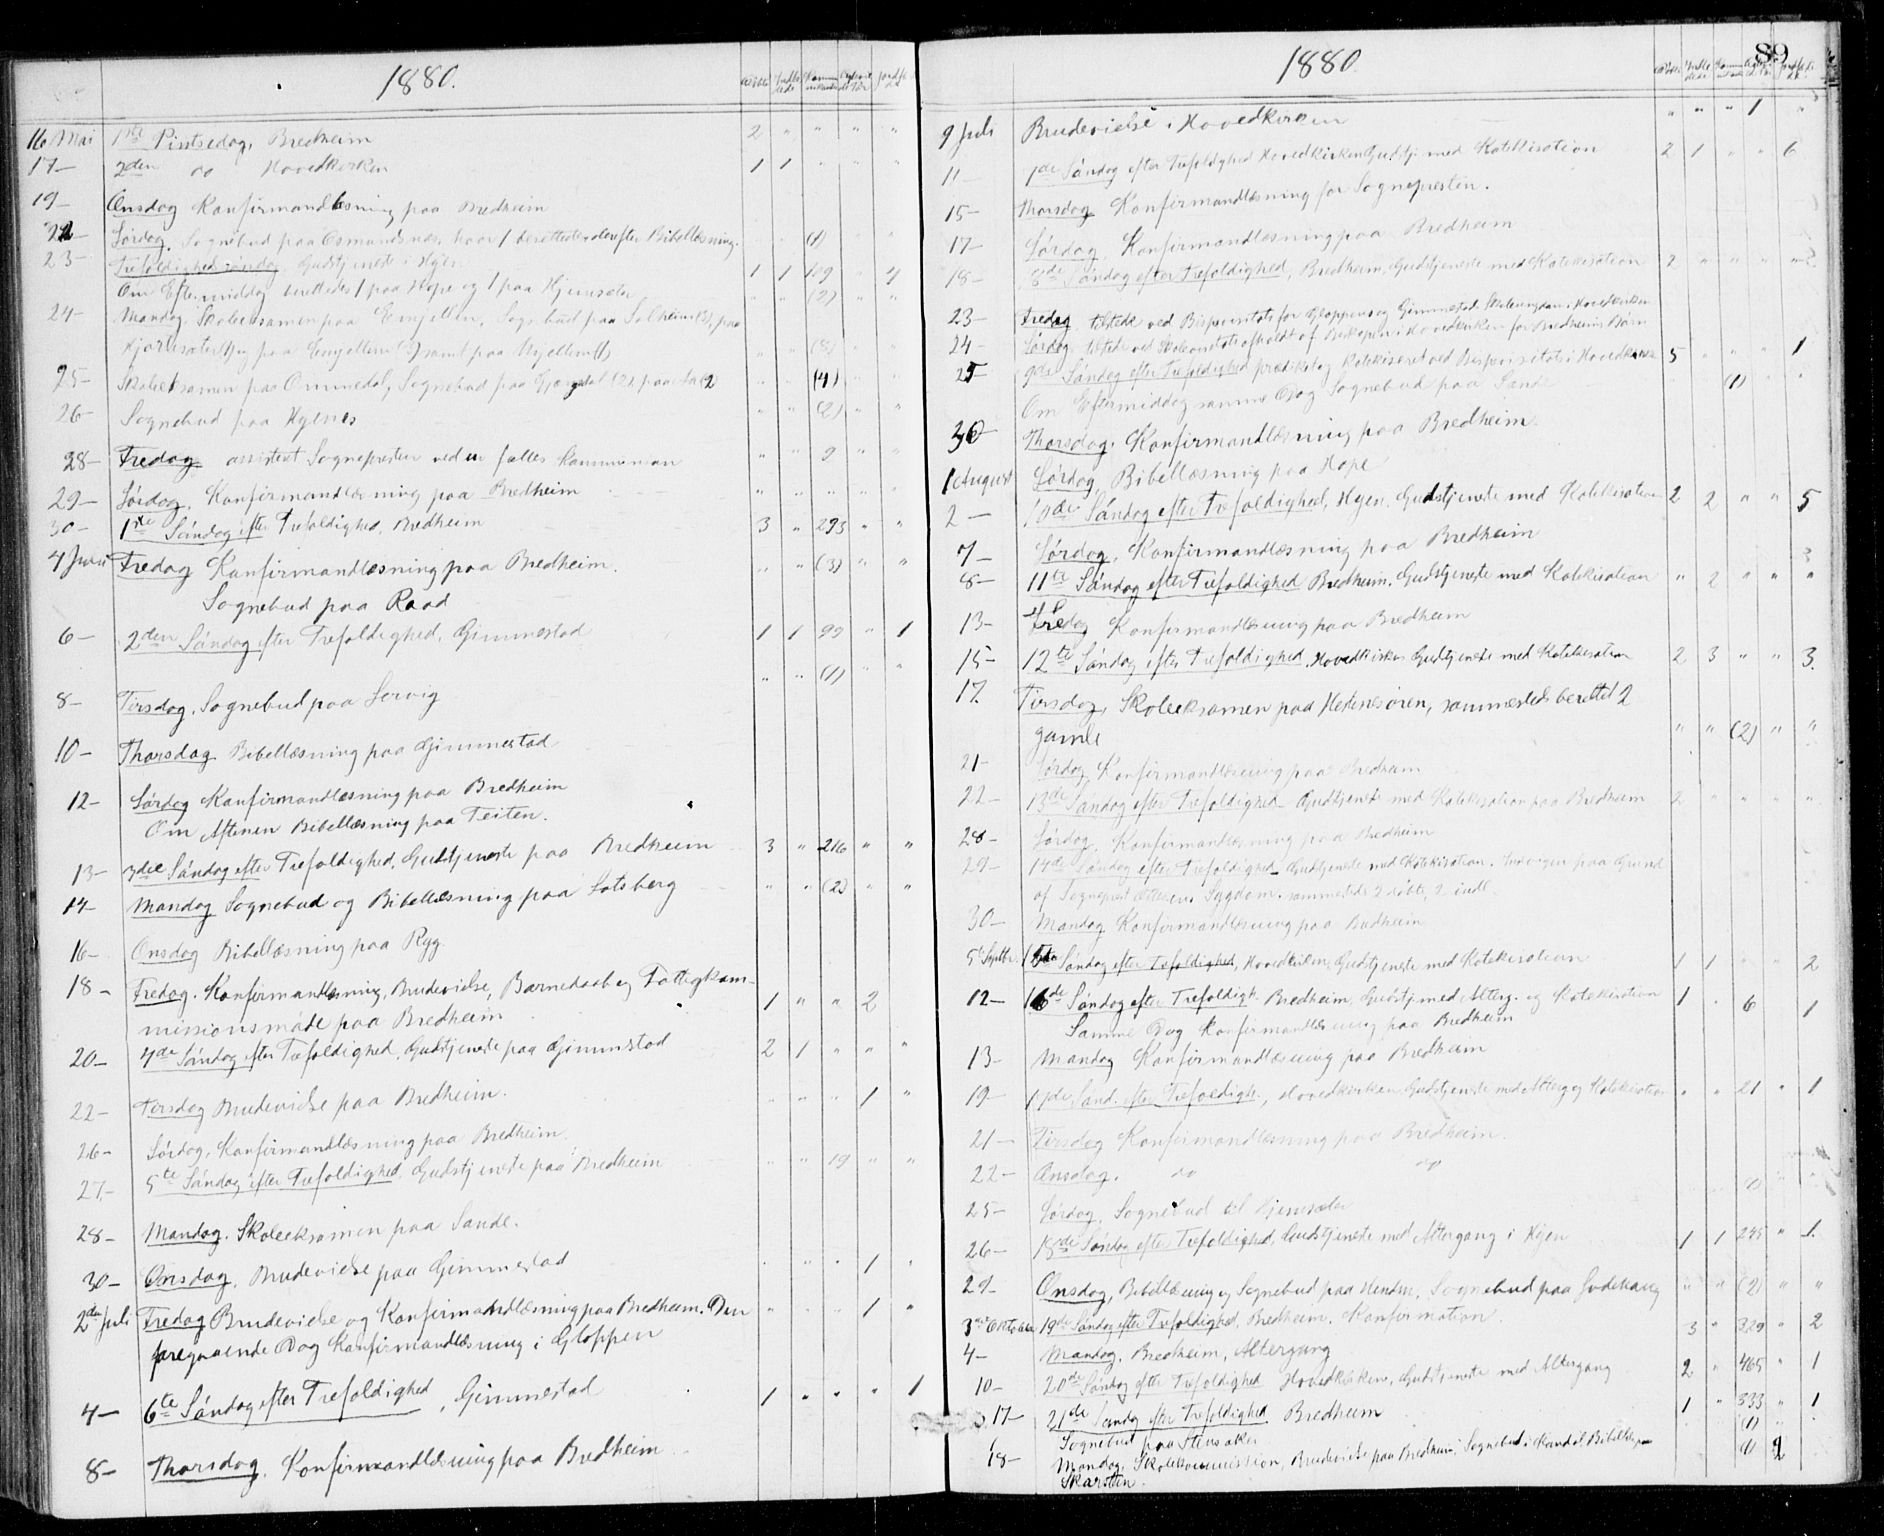 1880.
Døbte Indle- dede Kommu- nikanter Ægtevi- ede Par Jordfæ- st.
16 Mai 1ste Pintsedag, Bredheim 2 " " " "
17 — 2den do Hovedkirken 1 1 " " "
19 — Onsdag Konfirmandlæsning paa Bredheim
22 — Lördag. Sognebud paa Osmundsnes, hvor 1 berettedes, derefter Bibellæsning. " " (1) " "
23 — Trefoldighedsöndag. Gudstjeneste i Hyen 1 1 109 " 4
Om Eftermiddag berettedes 1 paa Hope og 1 paa Hjemsæter " " (2) " "
24 — Mandag. Skoleeksamen paa Eimjellen, Sognebud paa Solheim (3), paa
Hjorteseter (1) og paa Eimjellen samt paa Mjellem (1) " " (8) " "
25 — Skoleeksamen paa Ommedal, Sognebud paa Gjengedal (2), paa Aa (2) " " (4) " "
26 — Sognebud paa Hyenes " " (2) " "
28 — Fredag assistert Sognepresten ved en fælles Kommunion " " 9 " "
29 — Lördag. Konfirmandlæsning paa Bredheim " " " " "
30 — 1ste Söndag efter Trefoldighed, Bredheim 3 " 293 " "
4 Juni Fredag Konfirmandlæsning paa Bredheim. " " (3) " "
Sognebud paa Raad
6 — 2den Söndag efter Trefoldighed, Gimmestad 1 1 99 " 1
" " (1) " "
8 — Tirsdag. Sognebud paa Sørvig
10 — Thorsdag Bibellæsning paa Gimmestad
12 — Lördag Konfirmandlæsning paa Bredheim
Om Aftenen Bibellæsning paa Teiten.
13 — 3die Söndag efter Trefoldighed, Gudstjeneste paa Bredheim 3 " 216 " "
14 — Mandag Sognebud og Bibellæsning paa Lotsberg " " (2) " "
16 — Onsdag Bibellæsning paa Ryg.
18 — Fredag. Konfirmandlæsning, Brudevielse, Barnedaab og Fattigkom-
missionsmöde paa Bredheim 1 " " 2 "
20 — 4de Söndag efter Trefoldighed, Gudstjeneste paa Gimmestad 2 1 " " "
22 — Tirsdag Brudevielse paa Bredheim. " " " 1 "
26 — Lördag, Konfirmandlæsning paa Bredheim.
27 — 5te Söndag efter Trefoldighed, Gudstjeneste paa Bredheim " " 19 " "
28 — Mandag. Skoleeksamen paa Sande.
30 — Onsdag, Brudevielse paa Gimmestad " " " 1 "
2den Juli Fredag Brudevielse og Konfirmandlæsning paa Bredheim. Den " " " 1 "
foregaaende Dag Konfirmandlæsning i Gloppen
4 — 6te Söndag efter Trefoldighed, Gimmestad 1 " " " 1
8 — Thorsdag. Konfirmandlæsning paa Bredheim
1880.
89
9 Juli Brudevielse i Hovedkirken " " " 1 "
11 — 7de Söndag efter Trefoldighed Hovedkirken Gudstj. med Katekisation 2 1 " " 6
15 — Thorsdag Konfirmandlæsning for Sognepresten.
17 — Lördag. Konfirmandlæsning paa Bredheim
18 — 8de Söndag efter Trefoldighed, Bredheim, Gudstjeneste med Katekisation 2 " " " "
23 — Fredag tilstede ved Bispevisitats for Gloppens og Gimmestads Skoleungdom i Hovedkirken
24 — Lördag tilstede ved Skolevisitats afholdt af Biskopen i Hovedkirken for Bredheims Börn
25 9de Söndag efter Trefoldighed prædiket og katekiseret ved Bispevisitats i Hovedkirken 5 " " " 1
Om Eftermiddag samme Dag Sognebud paa Sande (1) " "
30 Thorsdag. Konfirmandlæsning paa Bredheim.
1 August Lördag Bibellæsning paa Hope
2 — 10de Söndag efter Trefoldighed, Hyen. Gudstjeneste med Katekisation 2 2 " " 5
7 — Lördag. Konfirmandlæsning paa Bredheim
8 — 11te Söndag efter Trefoldighed Bredheim. Gudstjeneste med Katekisation " 2 " " "
13 — Fredag Konfirmandlæsning paa Bredheim
15 — 12te Söndag efter Trefoldighed, Hovedkirken Gudstjeneste med Katekisation 2 3 " " 3.
17. Tirsdag, Skoleeksamen paa Hetnesören, sammesteds berettet 2
gamle " " (2) " "
21 — Lördag Konfirmandlæsning paa Bredheim
22 — 13de Söndag efter Trefoldighed Gudstjeneste med Katekisation paa Bredheim 2 " " " "
28 — Lördag. Konfirmandlæsning paa Bredheim
29 — 14de Söndag efter Trefoldighed Gudstjeneste med Katekisation. Indvigen paa Grund
af Sogneprestens Sygdom. sammesteds 2 döbte, 2 indl.
30 — Mandag Konfirmandlæsning paa Bredheim
5te Septbr. 15de Söndag efter Trefoldighed, Hovedkirken, Gudstjeneste med Katekisation 1 1 " " 2
12 — 16de Söndag efter Trefoldigh. Bredheim, Gudstj. med Alterg. og Katekisation 1 " 6 1
Samme Dag Konfirmandlæsning paa Bredheim
13 — Mandag Konfirmandlæsning paa Bredheim
19 — 17de Sönd. efter Trefoldigh., Hovedkirken Gudstjeneste med Alterg. og Katekisation " " 21 " 1
21 — Tirsdag Konfirmandlæsning paa Bredheim.
22 — Onsdag. do do
25 — Lördag. Sognebud til Hjemsæter
26 — 18de Söndag efter Trefoldighed, Gudstjeneste med Altergang i Hyen 1 1 245 " 1.
29 Onsdag, Bibellæsning og Sognebud paa Henden, Sognebud paa " " (2) " "
3die Oktober 19de Söndag efter Trefoldighed, Bredheim. Konfirmation 3 " 329 " 2
4 — Mandag, Bredheim, Altergang
10 — 20de Söndag efter Trefoldighed Hovedkirken, Gudstjeneste med Altergang 2 " 465 " 1
17 — 21de Söndag efter Trefoldighed Bredheim 1 " 333 " 1
Sognebud paa Stensaker (1) "
18 — Mandag, Skolekommission, Brudevielse paa Bredheim, Sognebud i Kandal, Bibellæsn. paa (1) 2
Skarsten.